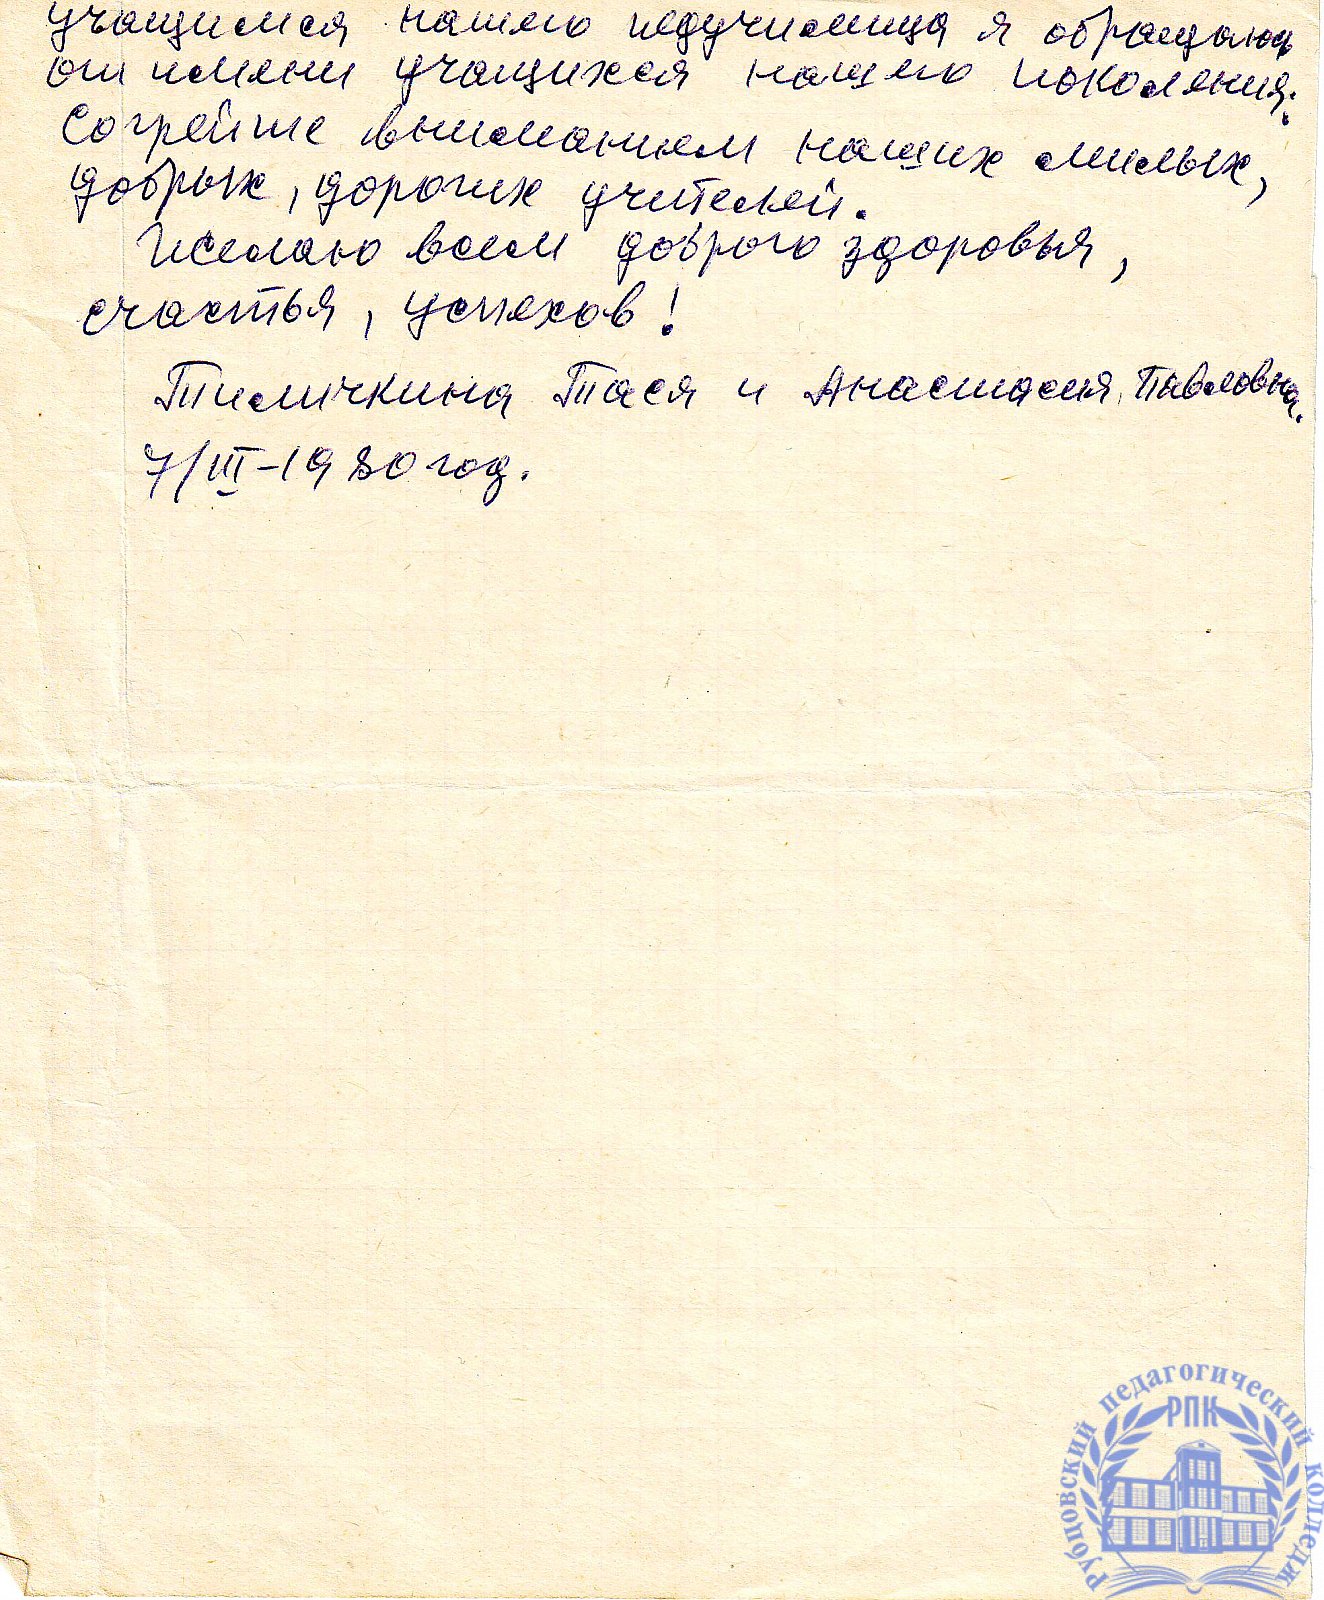 учащимся нашего педучилища я обращаюсь
от имени учащихся нашего поколения:
Согрейте вниманием наших милых,
добрых, дорогих учителей.
Желаю всем доброго здоровья,
счастья, успехов!
Тиличкина Тася и Анастасия Павловна.
7/III-1980 год.
Рубцовский педагогический колледж
РПК